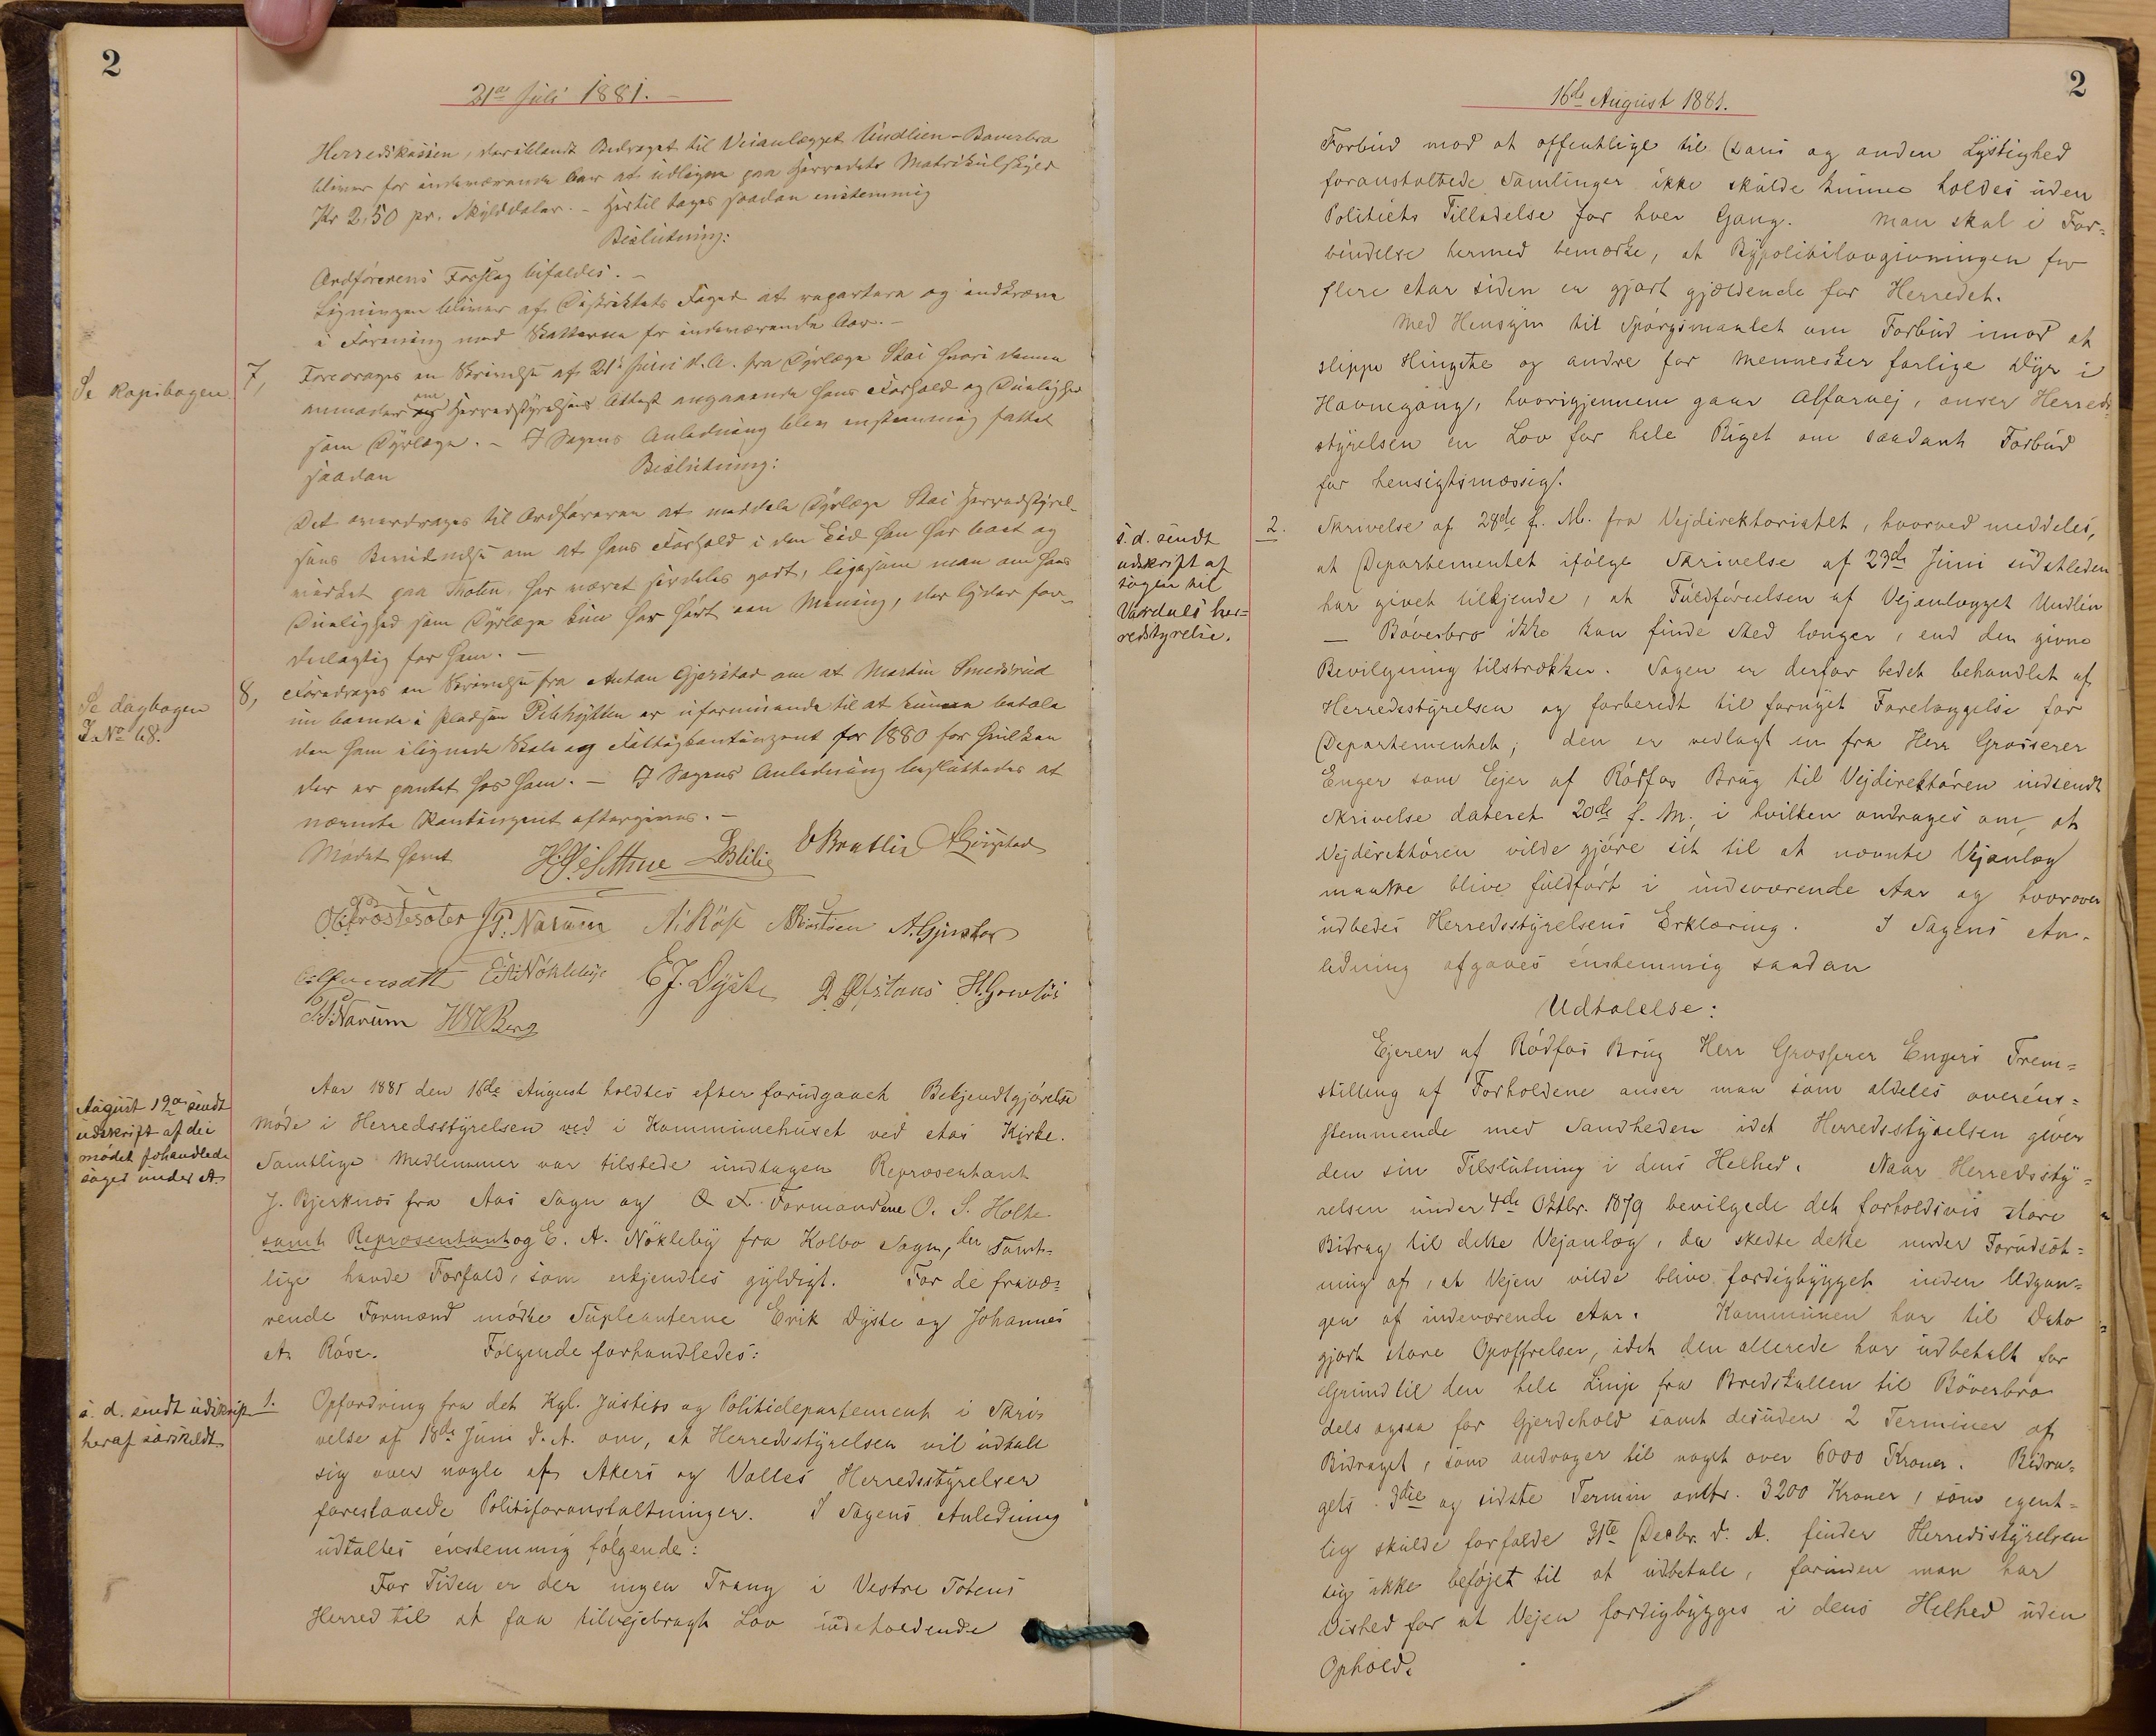 2
21de Juli 1881.
Herredskassen, deriblandt Bidraget til Veianlægget Undlien-Bøverbro
bliver for indeværende Aar at udligne paa Herredets Matrikulskyld
Kr 2,50 pr. Skylddaler. - Hertil toges saadan enstemmig
Beslutning:
Ordførerens Forslag bifaldes. -
Ligningen bliver af Distriktets Foged at repartere og indkræve
i Forening med Skatterne for indeværende Aar. -
Se kopibogen
7, Foredroges en Skrivelse af 21de Juni d. A. fra Dyrlæge Stai hvori denne
anmoder om Herredsstyrelsens Attest angaaende hans Forhold og Duelighed
som Dyrlæge. - I Sagens Anledning blev enstemmig fattet
saadan Beslutning:
Det overdrages til Ordføreren at meddele Dyrlæge Stai Herredsstyrel-
sens Bevidnelse om at hans Forhold i den Tid han har boet og
virket paa Thoten har været særdeles godt, ligesom man om hans
Duelighed som Dyrlæge kun har hørt een Mening, der lyder for-
delagtig for ham. -
Se dagbogen
J. No 68.
8, Foredroges en Skrivelse fra Anton Gjerstad om at Martin Smedsrud
nu boende i Pladsen Pilehytten er uformuende til at kunne betale
den ham ilignede Skole og Fattigkontingent for 1880 for hvilken
der er pantet hos ham. - I Sagens Anledning besluttedes at
nævnte Kontingent eftergives. -
Mødet hævet
Blilie O Bratlie A Gjerstad
J. P. Narum N. Röse A. Gjerstad
E. A. Nökleby E. J. Dyste
P. Narum H. Berg
Aar 1881 den 16de August holdtes efter forudgaaet Bekjendtgjørelse
August 19de sendt
udskrift af de i
mødet fohandlede
sager under A.
Møde i Herredsstyrelsen ved i Kommunehuset ved Aas Kirke.
Samtlige Medlemmer var tilstede undtagen Repræsentant
J. Bjerknæs fra Aas Sogn og Formændene O. S. Holte
samt Repræsentant og E. A. Nökleby fra Kolbo Sogn, der samt-
lige havde Forfald, som erkjendtes gyldigt. For de fravæ-
rende Formænd mødte Supleanterne Erik Dyste og Johannes
A. Röse. Følgende forhandledes:
s. d. sendt udskrift
heraf særskildt
1. Opfordring fra det Kgl. Justits og Politidepartement i Skri-
velse af 18de Juni d. A. om, at Herredsstyrelsen vil udtale
sig over nogle af Akers og Valles Herredsstyrelser
foreslaaede Politiforanstaltninger. I Sagens Anledning
udtaltes énstemmig følgende:
For Tiden er der ingen Trang i Vestre Totens
Herred til at faa tilvejebragt Lov indeholdende
2
16de August 1881.
Forbud mod at offentlige til Dans og anden Lystighed
foranstaltede Samlinger ikke skulde kunne holdes uden
Politiets Tilladelse for hver Gang. Man skal i For-
bindelse hermed bemærke, at Bypolitilovgivningen for
flere Aar siden er gjort gjældende for Herredet.
Med Hensyn til Spørgsmaalet om Forbud imod at
slippe Hingste og andre for Mennesker farlige Dyr i
Havnegang, hvorigjennem gaar Alfarvej, anser Herreds-
styrelsen en Lov for hele Riget om saadant Forbud
for hensigtsmæssig.
s. d. sendt
udskrift af
sagen til
Vardals her-
redstyrelse.
2. Skrivelse af 28de f. M. fra Vejdirektoriatet, hvorved meddeles,
at Departementet ifølge Skrivelse af 23de Juni sidstleden
har givet tilkjende, at Fuldførelsen af Vejanlægget Undlien
- Bøverbro ikke kan finde Sted længer, end den givne
Bevilgning tilstrækker. Sagen er derfor bedet behandlet af
Herredsstyrelsen og forberedt til fornyet Forelæggelse for
Departementet; den er vedlagt en fra Herr Grosserer
Enger som Ejer af Rödfos Brug til Vejdirektøren indsendt
Skrivelse dateret 20de f. M. i hvilken andrages om, at
Vejdirektøren vilde gjøre sit til at nævnte Vejanlæg
maatte blive fuldført i indeværende Aar og hvorover
udbedes Herredsstyrelsens Erklæring. I Sagens An-
ledning afgaves énstemmig saadan
Udtalelse:
Ejeren af Rödfos Brug Herr Grosserer Engers Frem-
stilling af Forholdene anser man som aldeles overéns-
stemmende med Sandheden idet Herredsstyrelsen giver
den sin Tilslutning i dens Helhed. Naar Herredssty-
relsen under 4de Oktbr. 1879 bevilgede det forholdsvis store
Bidrag til dette Vejanlæg, da skedte dette under Forudsæt-
ning af, at Vejen vilde blive færdigbygget inden Udgan-
gen af indeværende Aar. Kommunen har til Dato
gjort store Opoffrelser, idet den allerede har udbetalt for
Grund til den hele Linje fra Bredskallen til Böverbro
dels ogsaa for Gjerdehold samt desuden 2 Terminer af
Bidraget, som andrager til noget over 6000 Kroner. Bidra-
gets 3die og sidste Termin antbr. 3200 Kroner, som egent-
lig skulde forfalde 31te Decbr. d. A. finder Herredsstyrelsen
sig ikke beføjet til at udbetale, forinden man har
Vished for at Vejen færdigbygges i dens Helhed uden
Ophold.